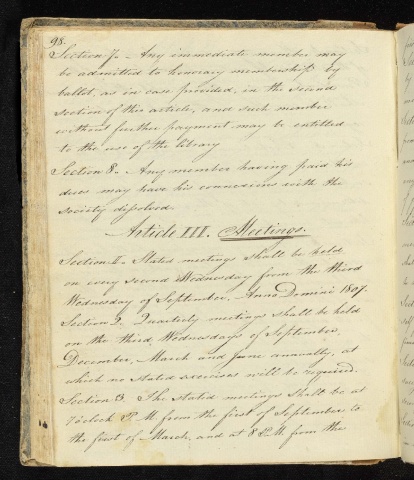 98.
Section 7. Any immediate member may
be admitted to honorary membership by
ballot, as in case provided, in the second
section of this article, and such member
without further payment may be entitled
to the use of the library
Section 8. Any member having paid his
dues may have his connexions with the
society dissolved.
Article III. Meetings.
Section I. Stated meetings shall be held
on every second Wednesday from the third
Wednesday of September, Anno Domini 1807.
Section 2. Quarterly meetings shall be held
on the third Wednesdays of September,
December, March and June annually, at
which no stated exercises will be required.
Section 3. The stated meetings shall be at
7 o'clock P.M. from the first of September to
the first of March, and at 8 P.M. from the